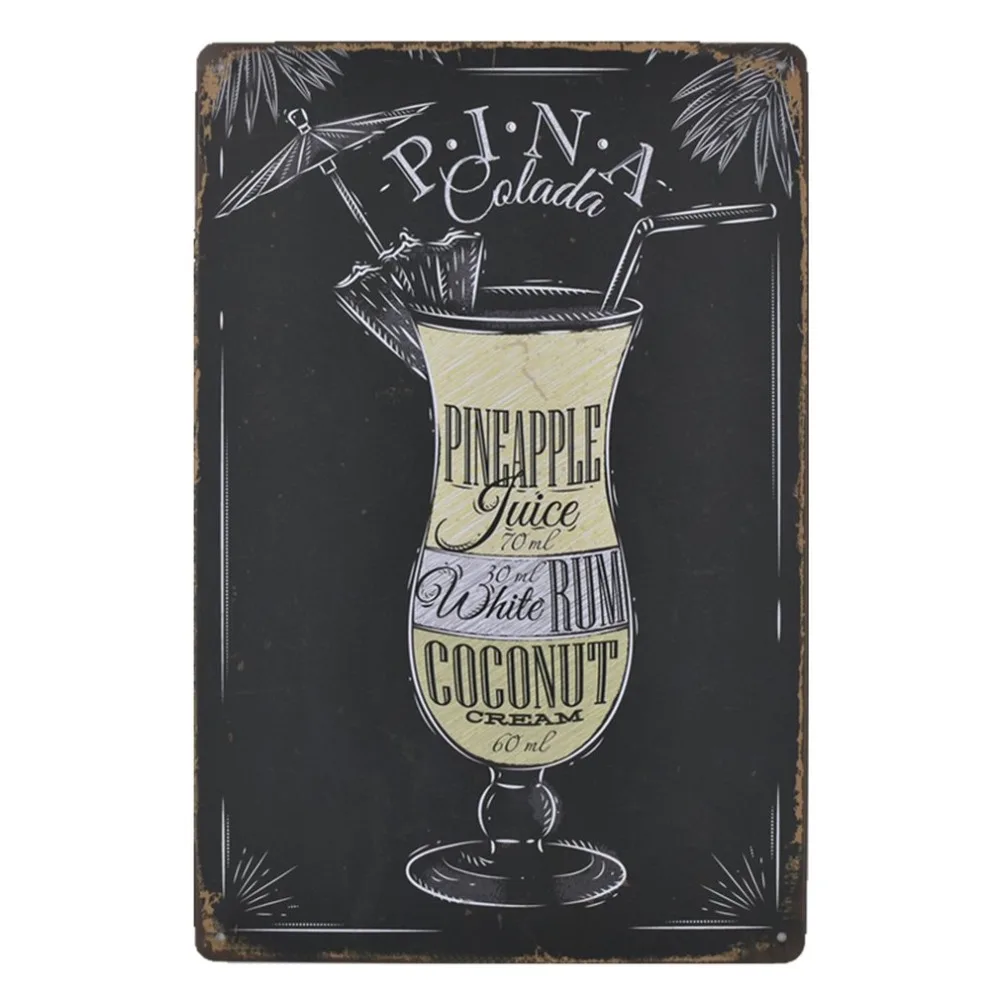 P·I·N·A
Colada
PINEAPPLE
Juice
70 ml
30 ml
White RUM
COCONUT
CREAM
60 ml